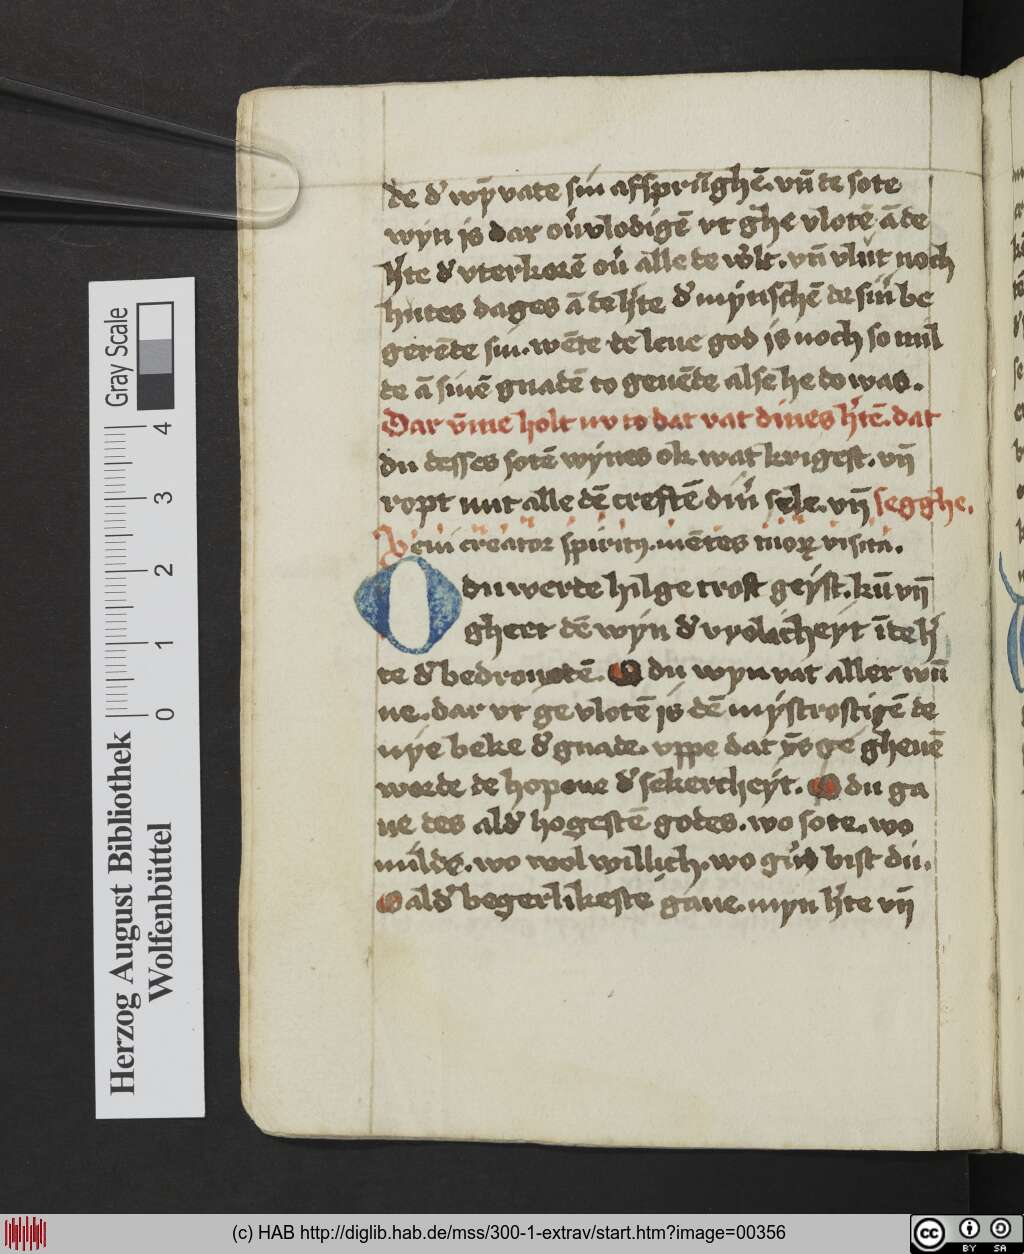 de d' wp̄vate sin affsprūghē. vn̄ de sote
wyn is dar ou'vlodigē vt ghe vlotē ā de
h'te d' vterkorē ou' alle de w'lt. vn̄ vlut noch
hutes dages ā de h'te d' mynschē de sin' be
gerēde sin. wēte de leue god is noch so mil
de ā sinē gnadē to geuēde alse he do was.
Dar v̄me holt nv to dat vat dines h'tē. dat
du desses sotē wynes ok wat krigest. vn̄
ropt mit alle dē creftē din' sele. vn̄ segghe.
Veni creator spiritꝰ. mētes tuoꝝ visita.
O du werde hilge trost geyst. kū vn̄
gheet dē wyn d' vrolicheyt ī de h'
te d' bedrouotē. O du wyn vat aller wū
ne. dar vt ge vlotē is dē mystrostigē de
nye beke d' gnade. vppe dat ys ge gheuē
worde de hopene d' sekercheyt. O du ga
ue des ald' hogestē godes. wo sote. wo
milde. wo wol willich. wo gud bist du.
O ald' begerlikeste gaue. myn h'te vn̄
Gray Scale
0 1 2 3 4
Herzog August Bibliothek
Wolfenbüttel
(c) HAB http://diglib.hab.de/mss/300-1-extrav/start.htm?image=00356
cc BY SA